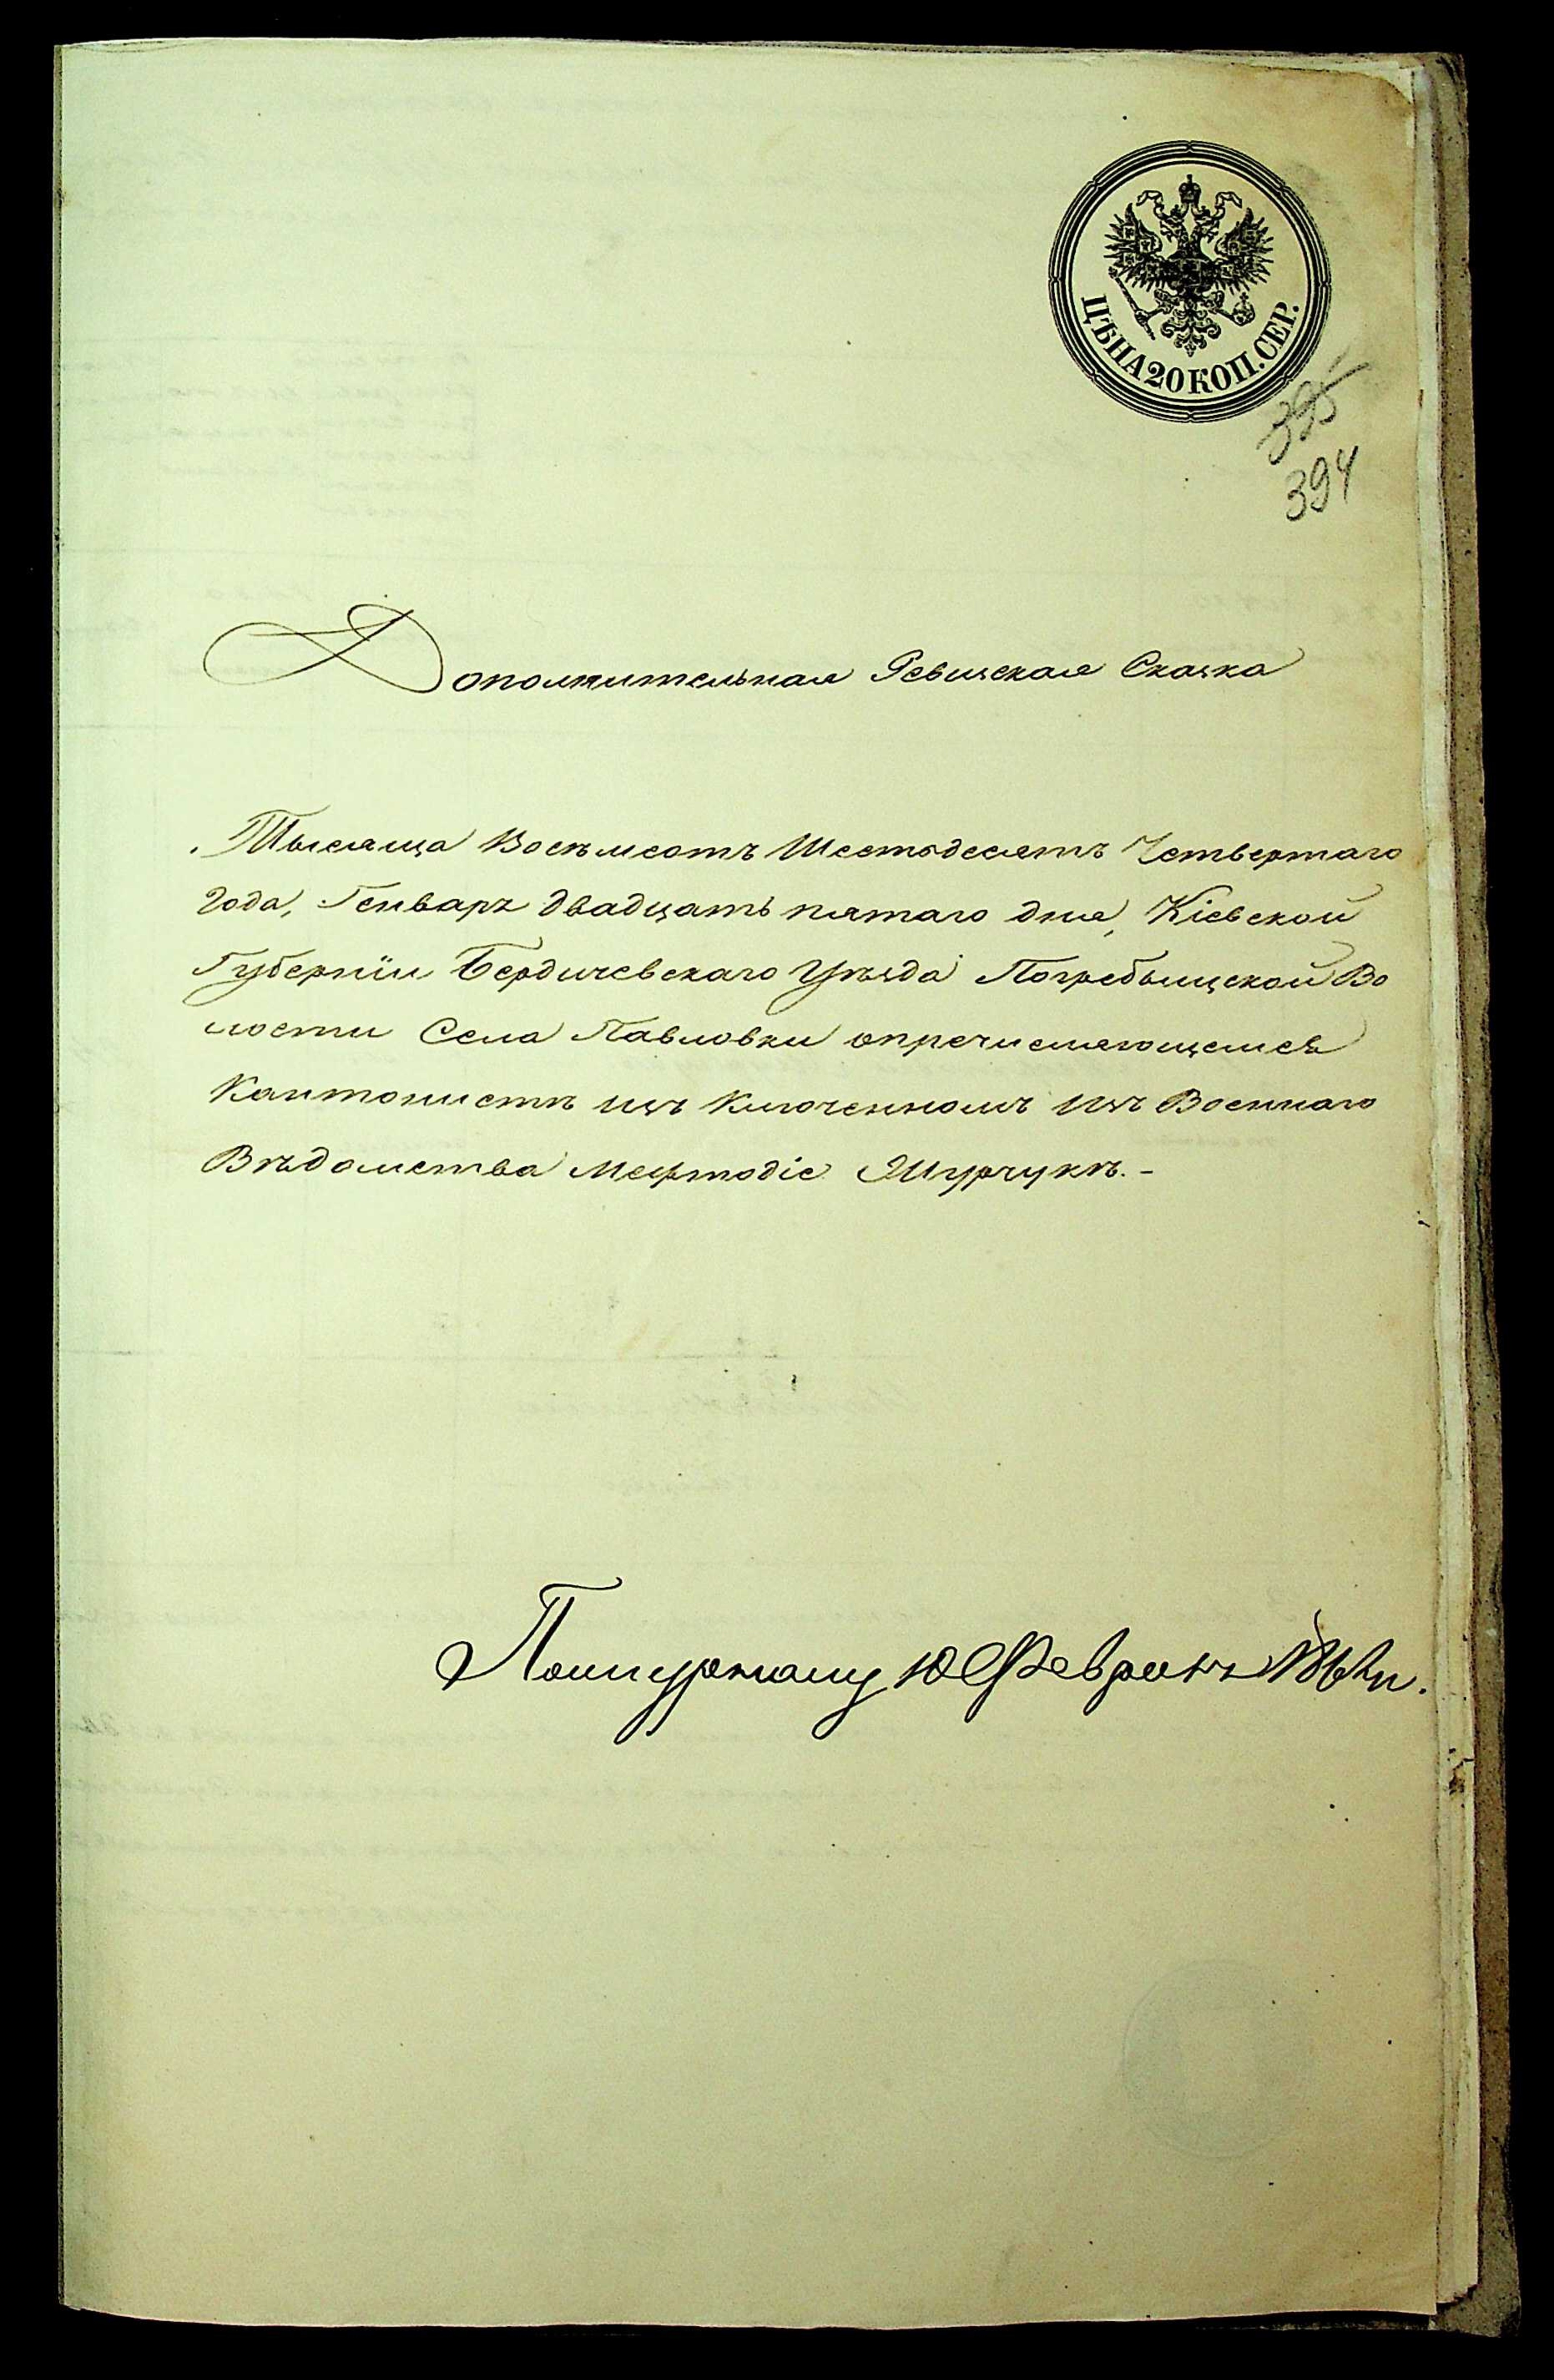 ЦѢНА 20 КОП. СЕР.
395
394
Дополнительная Ревизская Сказка
Тысяща Восемьсотъ Шестьдесятъ Четвертаго
Года, Генваря двадцать пятаго дня, Кіевской
Губерніи Бердичевскаго Уѣзда Погребыщской Во
лости Села Павловки опречисляющемся
Кантонистѣ изъ Ключенномъ Изъ Военнаго
Вѣдомства Мефтодіе Шурчукѣ.-
10 Февраля